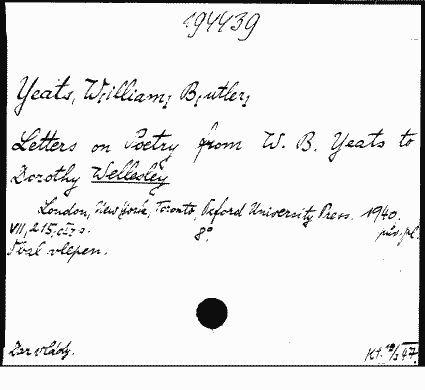 194439
Yeats, William Butler,
Letters on Poetry from W. B. Yeats to
Dorothy Wellesley
London, New York, Toronto, Oxford University Press. 1940.
VII, 215, s. 8°. pův. pl.
Fval vlepen.
Dar vlády.
Kt.